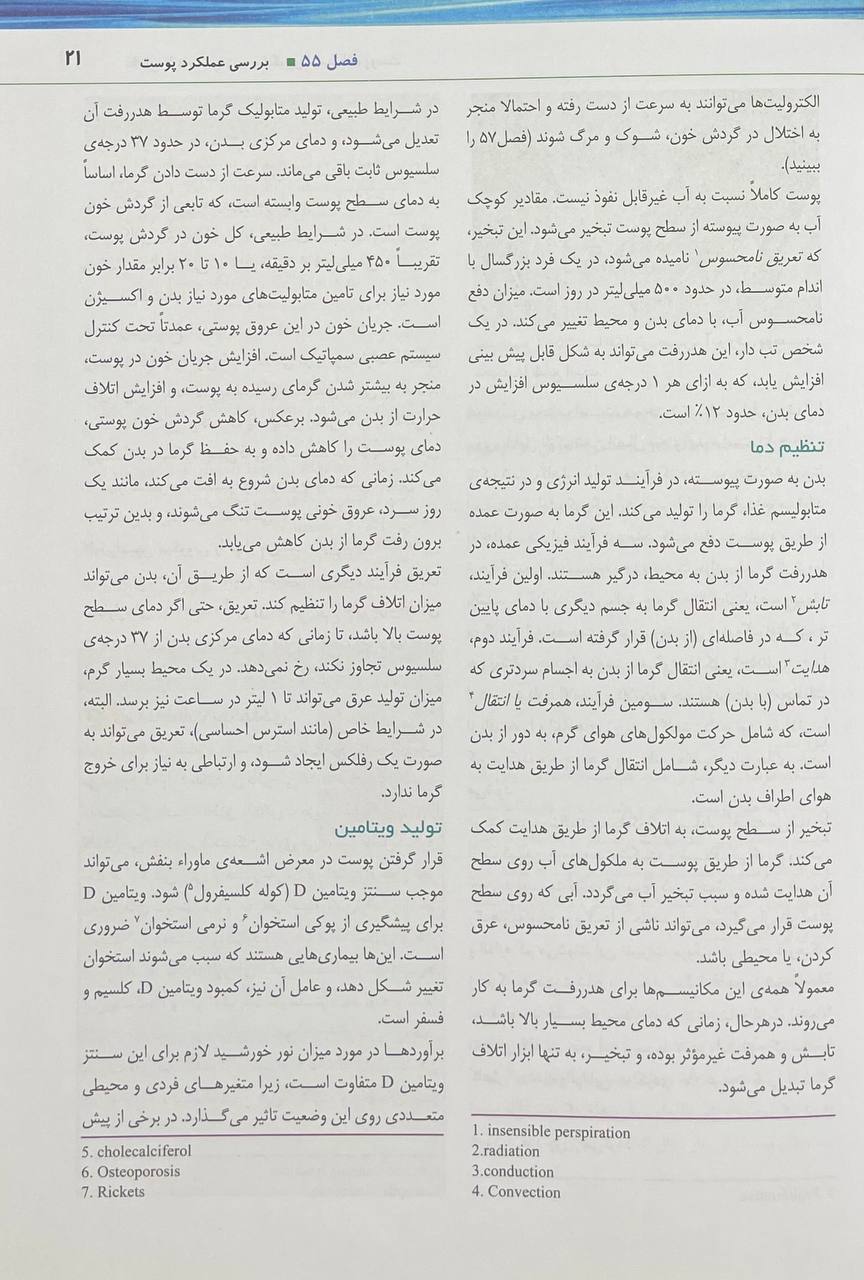 فصل ۵۵ ■ بررسی عملکرد پوست ۲۱
الکترولیت‌ها می‌توانند به سرعت از دست رفته و احتمالا منجر
به اختلال در گردش خون، شوک و مرگ شوند (فصل۵۷ را
ببینید).
پوست کاملاً نسبت به آب غیرقابل نفوذ نیست. مقادیر کوچک
آب به صورت پیوسته از سطح پوست تبخیر می‌شود. این تبخیر،
که تعریق نامحسوس۱ نامیده می‌شود، در یک فرد بزرگسال با
اندام متوسط، در حدود ۵۰۰ میلی‌لیتر در روز است. میزان دفع
نامحسوس آب، با دمای بدن و محیط تغییر می‌کند. در یک
شخص تب دار، این هدررفت می‌تواند به شکل قابل پیش بینی
افزایش یابد، که به ازای هر ۱ درجه‌ی سلسیوس افزایش در
دمای بدن، حدود ۱۲٪ است.
تنظیم دما
بدن به صورت پیوسته، در فرآیند تولید انرژی و در نتیجه‌ی
متابولیسم غذا، گرما را تولید می‌کند. این گرما به صورت عمده
از طریق پوست دفع می‌شود. سه فرآیند فیزیکی عمده، در
هدررفت گرما از بدن به محیط، درگیر هستند. اولین فرآیند،
تابش۲ است، یعنی انتقال گرما به جسم دیگری با دمای پایین
تر ، که در فاصله‌ای (از بدن) قرار گرفته است. فرآیند دوم،
هدایت۳ است، یعنی انتقال گرما از بدن به اجسام سردتری که
در تماس (با بدن) هستند. سومین فرآیند، همرفت یا انتقال۴
است، که شامل حرکت مولکول‌های هوای گرم، به دور از بدن
است. به عبارت دیگر، شامل انتقال گرما از طریق هدایت به
هوای اطراف بدن است.
تبخیر از سطح پوست، به اتلاف گرما از طریق هدایت کمک
می‌کند. گرما از طریق پوست به ملکول‌های آب روی سطح
آن هدایت شده و سبب تبخیر آب می‌گردد. آبی که روی سطح
پوست قرار می‌گیرد، می‌تواند ناشی از تعریق نامحسوس، عرق
کردن، یا محیطی باشد.
معمولاً همه‌ی این مکانیسم‌ها برای هدررفت گرما به کار
می‌روند. درهرحال، زمانی که دمای محیط بسیار بالا باشد،
تابش و همرفت غیرمؤثر بوده، و تبخیر، به تنها ابزار اتلاف
گرما تبدیل می‌شود.
1. insensible perspiration
2.radiation
3.conduction
4. Convection
در شرایط طبیعی، تولید متابولیک گرما توسط هدررفت آن
تعدیل می‌شود، و دمای مرکزی بدن، در حدود ۳۷ درجه‌ی
سلسیوس ثابت باقی می‌ماند. سرعت از دست دادن گرما، اساساً
به دمای سطح پوست وابسته است، که تابعی از گردش خون
پوست است. در شرایط طبیعی، کل خون در گردش پوست،
تقریباً ۴۵۰ میلی‌لیتر بر دقیقه، یا ۱۰ تا ۲۰ برابر مقدار خون
مورد نیاز برای تامین متابولیت‌های مورد نیاز بدن و اکسیژن
است. جریان خون در این عروق پوستی، عمدتاً تحت کنترل
سیستم عصبی سمپاتیک است. افزایش جریان خون در پوست،
منجر به بیشتر شدن گرمای رسیده به پوست، و افزایش اتلاف
حرارت از بدن می‌شود. برعکس، کاهش گردش خون پوستی،
دمای پوست را کاهش داده و به حفظ گرما در بدن کمک
می‌کند. زمانی که دمای بدن شروع به افت می‌کند، مانند یک
روز سرد، عروق خونی پوست تنگ می‌شوند، و بدین ترتیب
برون رفت گرما از بدن کاهش می‌یابد.
تعریق فرآیند دیگری است که از طریق آن، بدن می‌تواند
میزان اتلاف گرما را تنظیم کند. تعریق، حتی اگر دمای سطح
پوست بالا باشد، تا زمانی که دمای مرکزی بدن از ۳۷ درجه‌ی
سلسیوس تجاوز نکند، رخ نمی‌دهد. در یک محیط بسیار گرم،
میزان تولید عرق می‌تواند تا ۱ لیتر در ساعت نیز برسد. البته،
در شرایط خاص (مانند استرس احساسی)، تعریق می‌تواند به
صورت یک رفلکس ایجاد شود، و ارتباطی به نیاز برای خروج
گرما ندارد.
تولید ویتامین
قرار گرفتن پوست در معرض اشعه‌ی ماوراء بنفش، می‌تواند
موجب سنتز ویتامین D (کوله کلسیفرول۵) شود. ویتامین D
برای پیشگیری از پوکی استخوان۶ و نرمی استخوان۷ ضروری
است. این‌ها بیماری‌هایی هستند که سبب می‌شوند استخوان
تغییر شکل دهد، و عامل آن نیز، کمبود ویتامین D، کلسیم و
فسفر است.
برآوردها در مورد میزان نور خورشید لازم برای این سنتز
ویتامین D متفاوت است، زیرا متغیرهای فردی و محیطی
متعددی روی این وضعیت تاثیر می‌گذارد. در برخی از پیش
5. cholecalciferol
6. Osteoporosis
7. Rickets